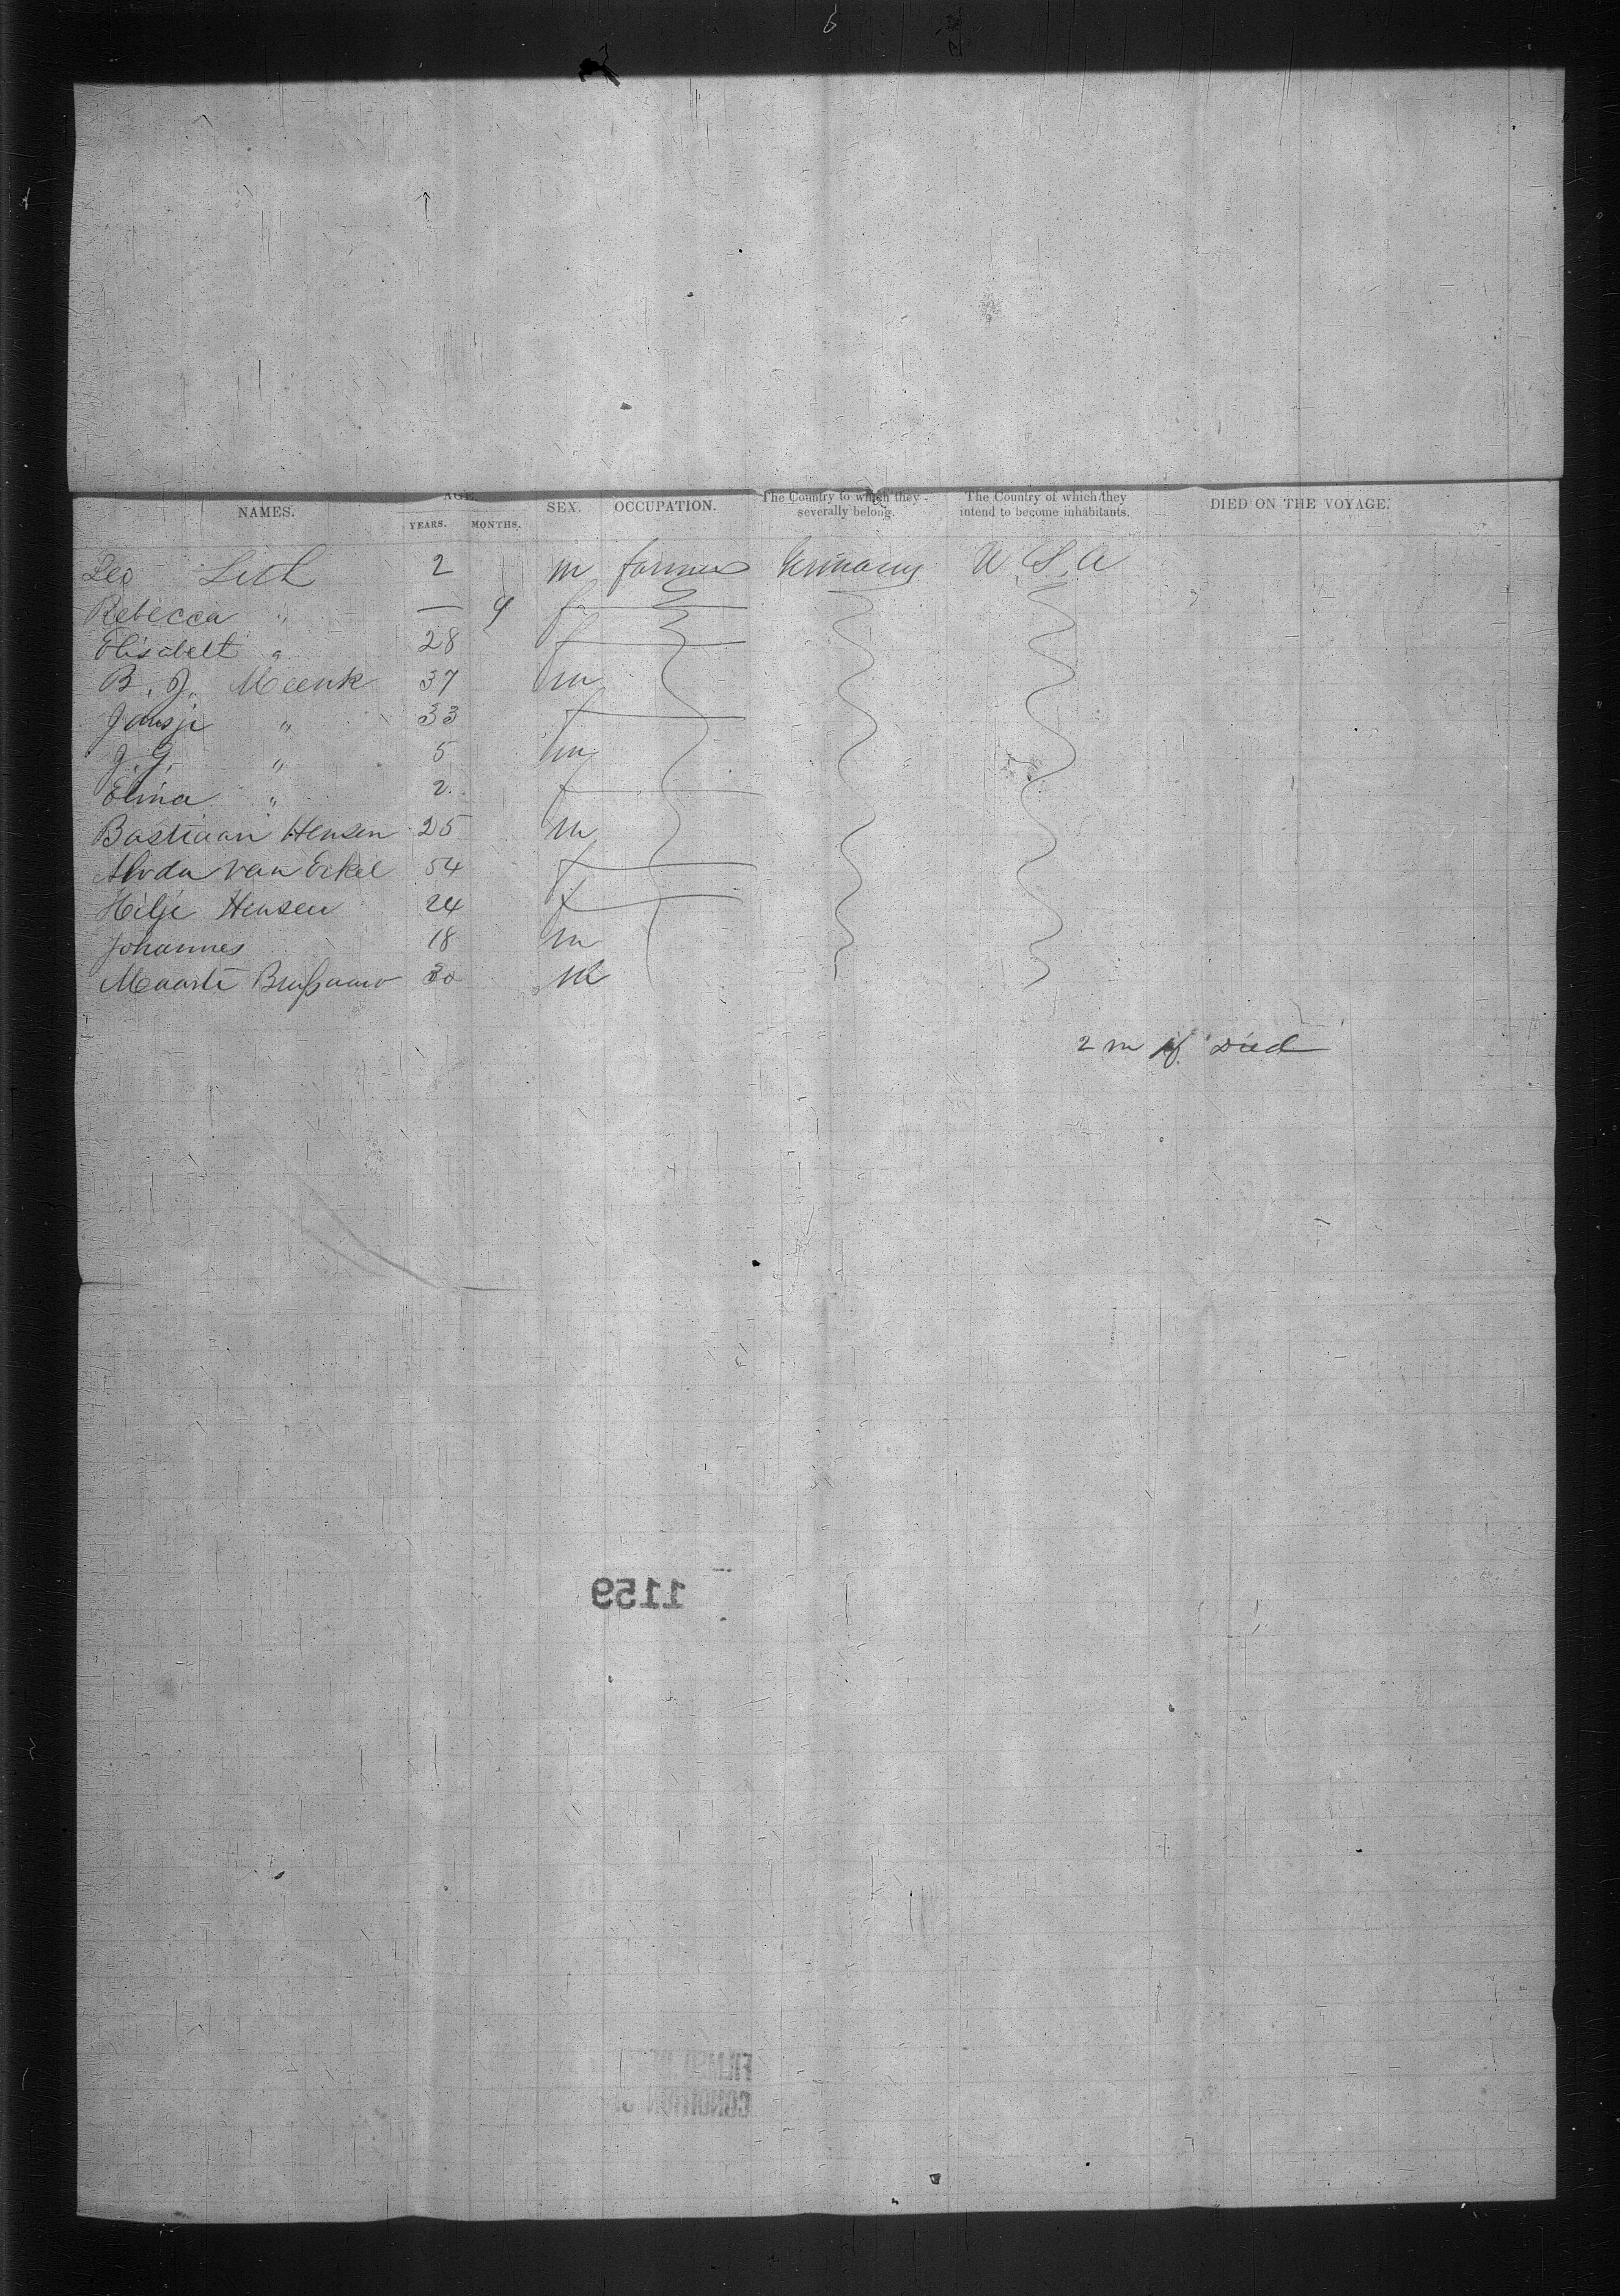 NAMES. AGE. YEARS. MONTHS. SEX. OCCUPATION. The Country to which they severally belong. The Country of which they intend to become inhabitants. DIED ON THE VOYAGE.
Leo 2 m farmer Germany U S A
Rebecca " — 9 f
Elisabelt " 28 f
B. J. Meenk 37 m
Jansje " 33 f
J. G. " 5 m
Elina " 2 f
Bastiaan Hensen 25 m
van Eckel 54 f
Hilje Hensen 24 f
Johannes 18 m
Maarte 30 m
2 m f Died
1159